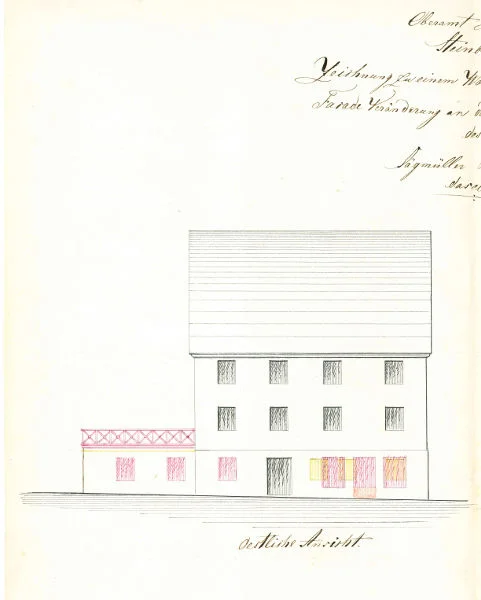 Oberamt
Zeichnung zu einem
Facade Veränderung an
des
Sägmüller
Oestliche Ansicht.